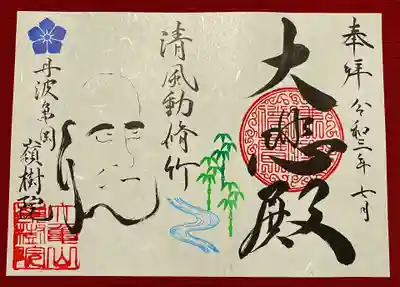 奉拝
令和三年七月
大悲殿
清風動脩竹
丹波亀岡
嶺樹院